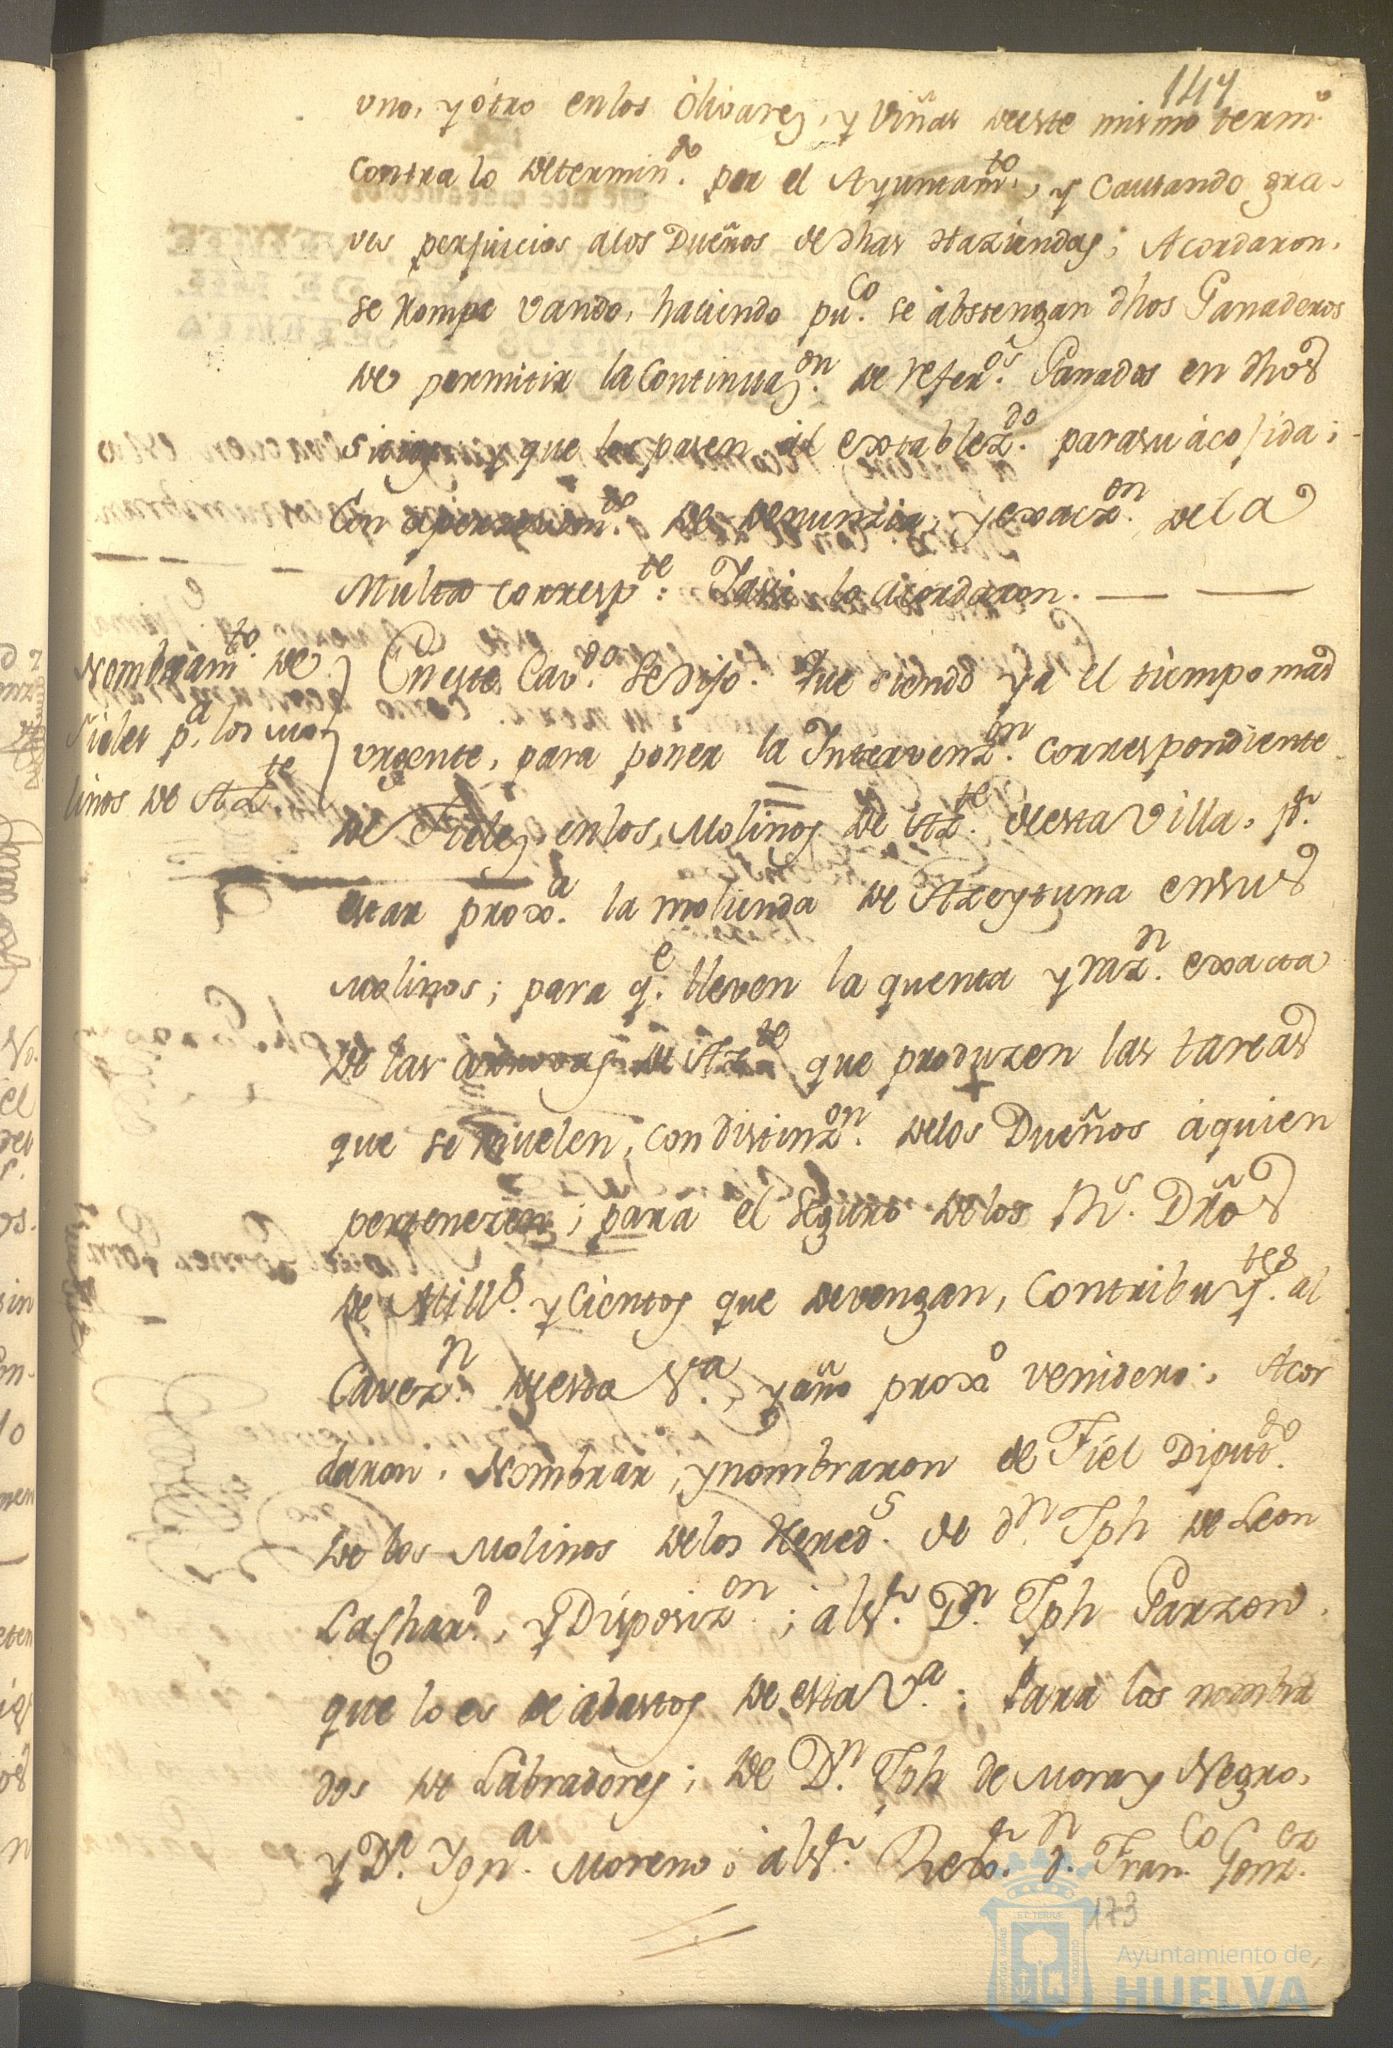 147
uno, y ótro en los Olivares, y Viñas de este mismo termº
contra lo Determinᵈᵒ. por el Ayuntamᵗᵒ., y Causando gra-
ves perjuicios alos Dueños de dhas Haziendas; Acordaron,
se Rompe vando, haciendo puᶜᵒ. se abstengan dhos Ganaderos
de permitir la Continuazᵒⁿ. de referᵒˢ. Ganados en dhos
sitios y que los pasen al extablezᵈᵒ. para su acojida;
Con aperzevimᵗᵒ. de denunzia, y exaczᵒⁿ. de la
Multa correspᵗᵉ: Y assi lo acordaron.
Nombramᵗᵒ. de
Fieles pᵃ. los Mo
linos de Azᵗᵉ
En este Cavᵈᵒ. Se Dijo. Que siendo ya el tiempo mas
urgente, para poner la Intervenzᵒⁿ. correspondiente
de Fieles, en los Molinos de Azᵗᵉ. de esta Villa, pʳ.
estar proxᵃ. la molienda de Azeytuna en sus
Molinos; para qᵉ. lleven la quenta y razⁿ. exacta
De las arrovas de Azᵗᵉ que produzen las tareas
que se muelen, con distinzᵒⁿ. delos Dueños á quien
pertenezen; para el Seguro de los Rˢ. Dr̃os
de Millˢ. y Cientos que devengan, Contribuyᵗᵉˢ. al
Cavezⁿ. de esta Vᵃ., y año proxº venidero; Acor
daron, Nombrar, y nombraron de Fiel Diputᵈᵒ.
De los Molinos de los Heredˢ. de dⁿ. Jph de Leon
Lacharᵈ., y Disposizᵒⁿ.; al Sʳ. Dⁿ. Jph Garzon,
que lo es de abastos de esta Vᵃ.; Para los nombra
dos de Labradores; de Dⁿ. Jph de Mora y Negro,
y Dᵃ. Ygnᵃ. Moreno; al Sʳ. Rexᵒʳ. dⁿ. Franᶜᵒ Gonzᵉᶻ.
173
Ayuntamiento de
HUELVA